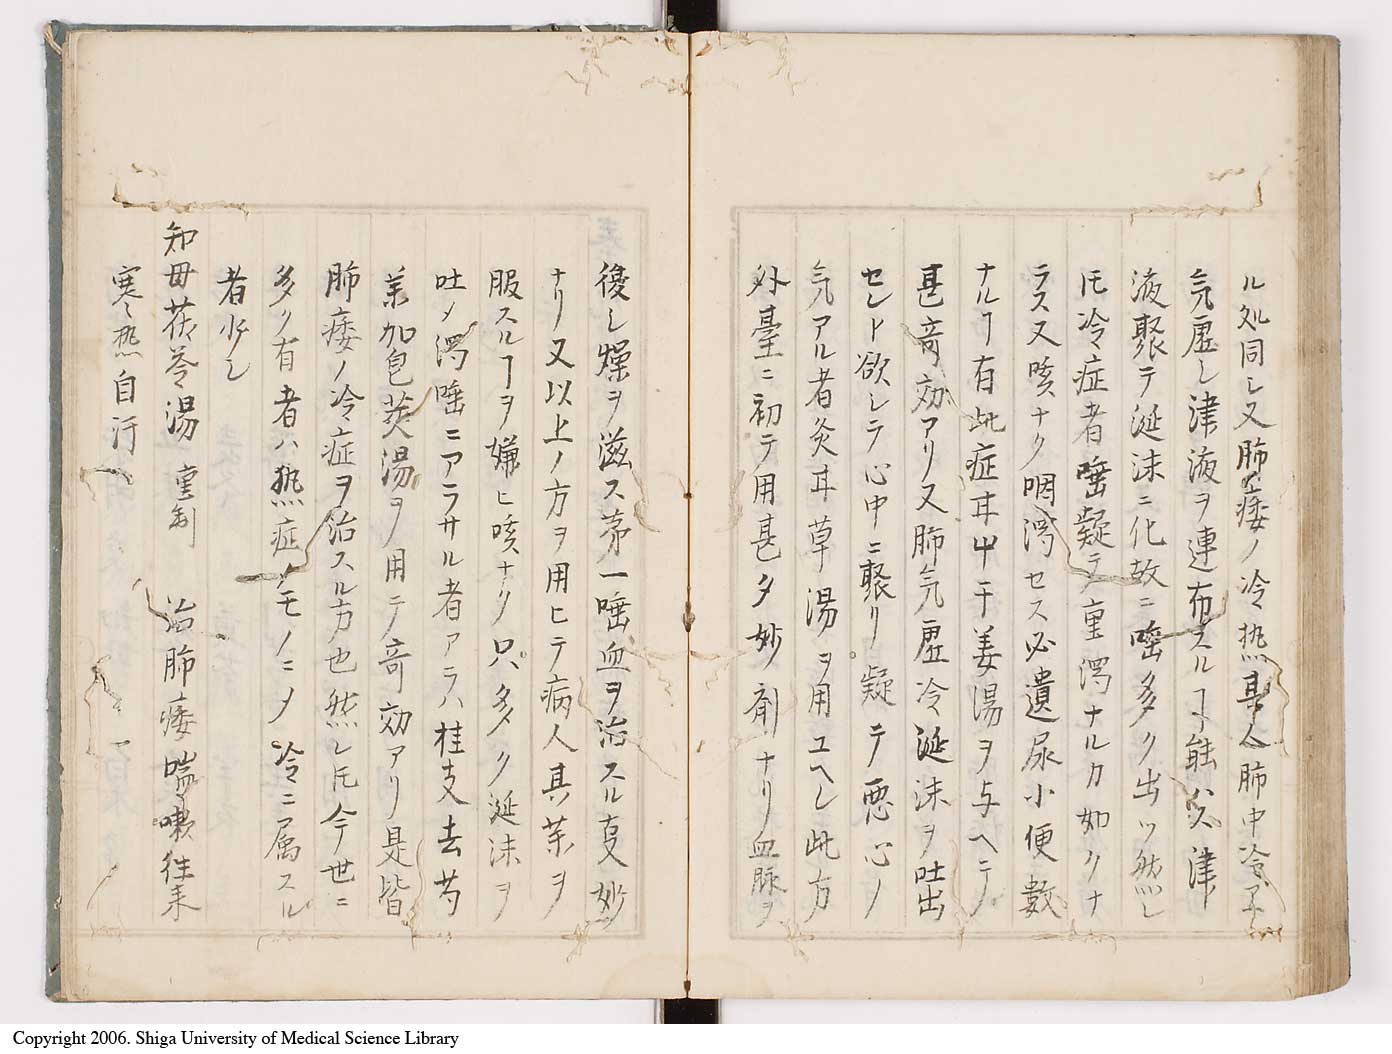 ル処同シ又肺痿ノ冷熱其人肺中冷ヘ
気虚シ津液ヲ連布スルヿ能ハス津
液聚テ涎沫ニ化故ニ唾多ク出ツ然レ
𪜈冷症者唾凝テ重濁ナルカ如クナ
ラス又咳ナク咽渇セス必遺尿小便数
ナルヿ有此症耳艸干姜湯ヲ与ヘテ
甚竒効アリ又肺気虚冷涎沫ヲ吐出
セント欲シテ心中ニ聚リ凝テ悪心ノ
気アル者灸耳草湯ヲ用ユヘシ此方
外臺ニ初テ用甚タ妙剤ナリ血脈ヲ
復シ燥ヲ滋ス第一唾血ヲ治スル㕝妙
ナリ又以上ノ方ヲ用ヒテ病人其薬ヲ
服スルヿヲ嫌ヒ咳ナク只多ク涎沫ヲ
吐メ濁唾ニアラサル者アラハ桂支去芍
薬加皀莢湯ヲ用テ竒効アリ是皆
肺痿ノ冷症ヲ治スル方也然レ𪜈今世ニ
多ク有者ハ熱症ノモノニメ冷ニ属スル
者少シ
知母茯苓湯 宣制 治肺痿喘嗽往来
寒熱自汗